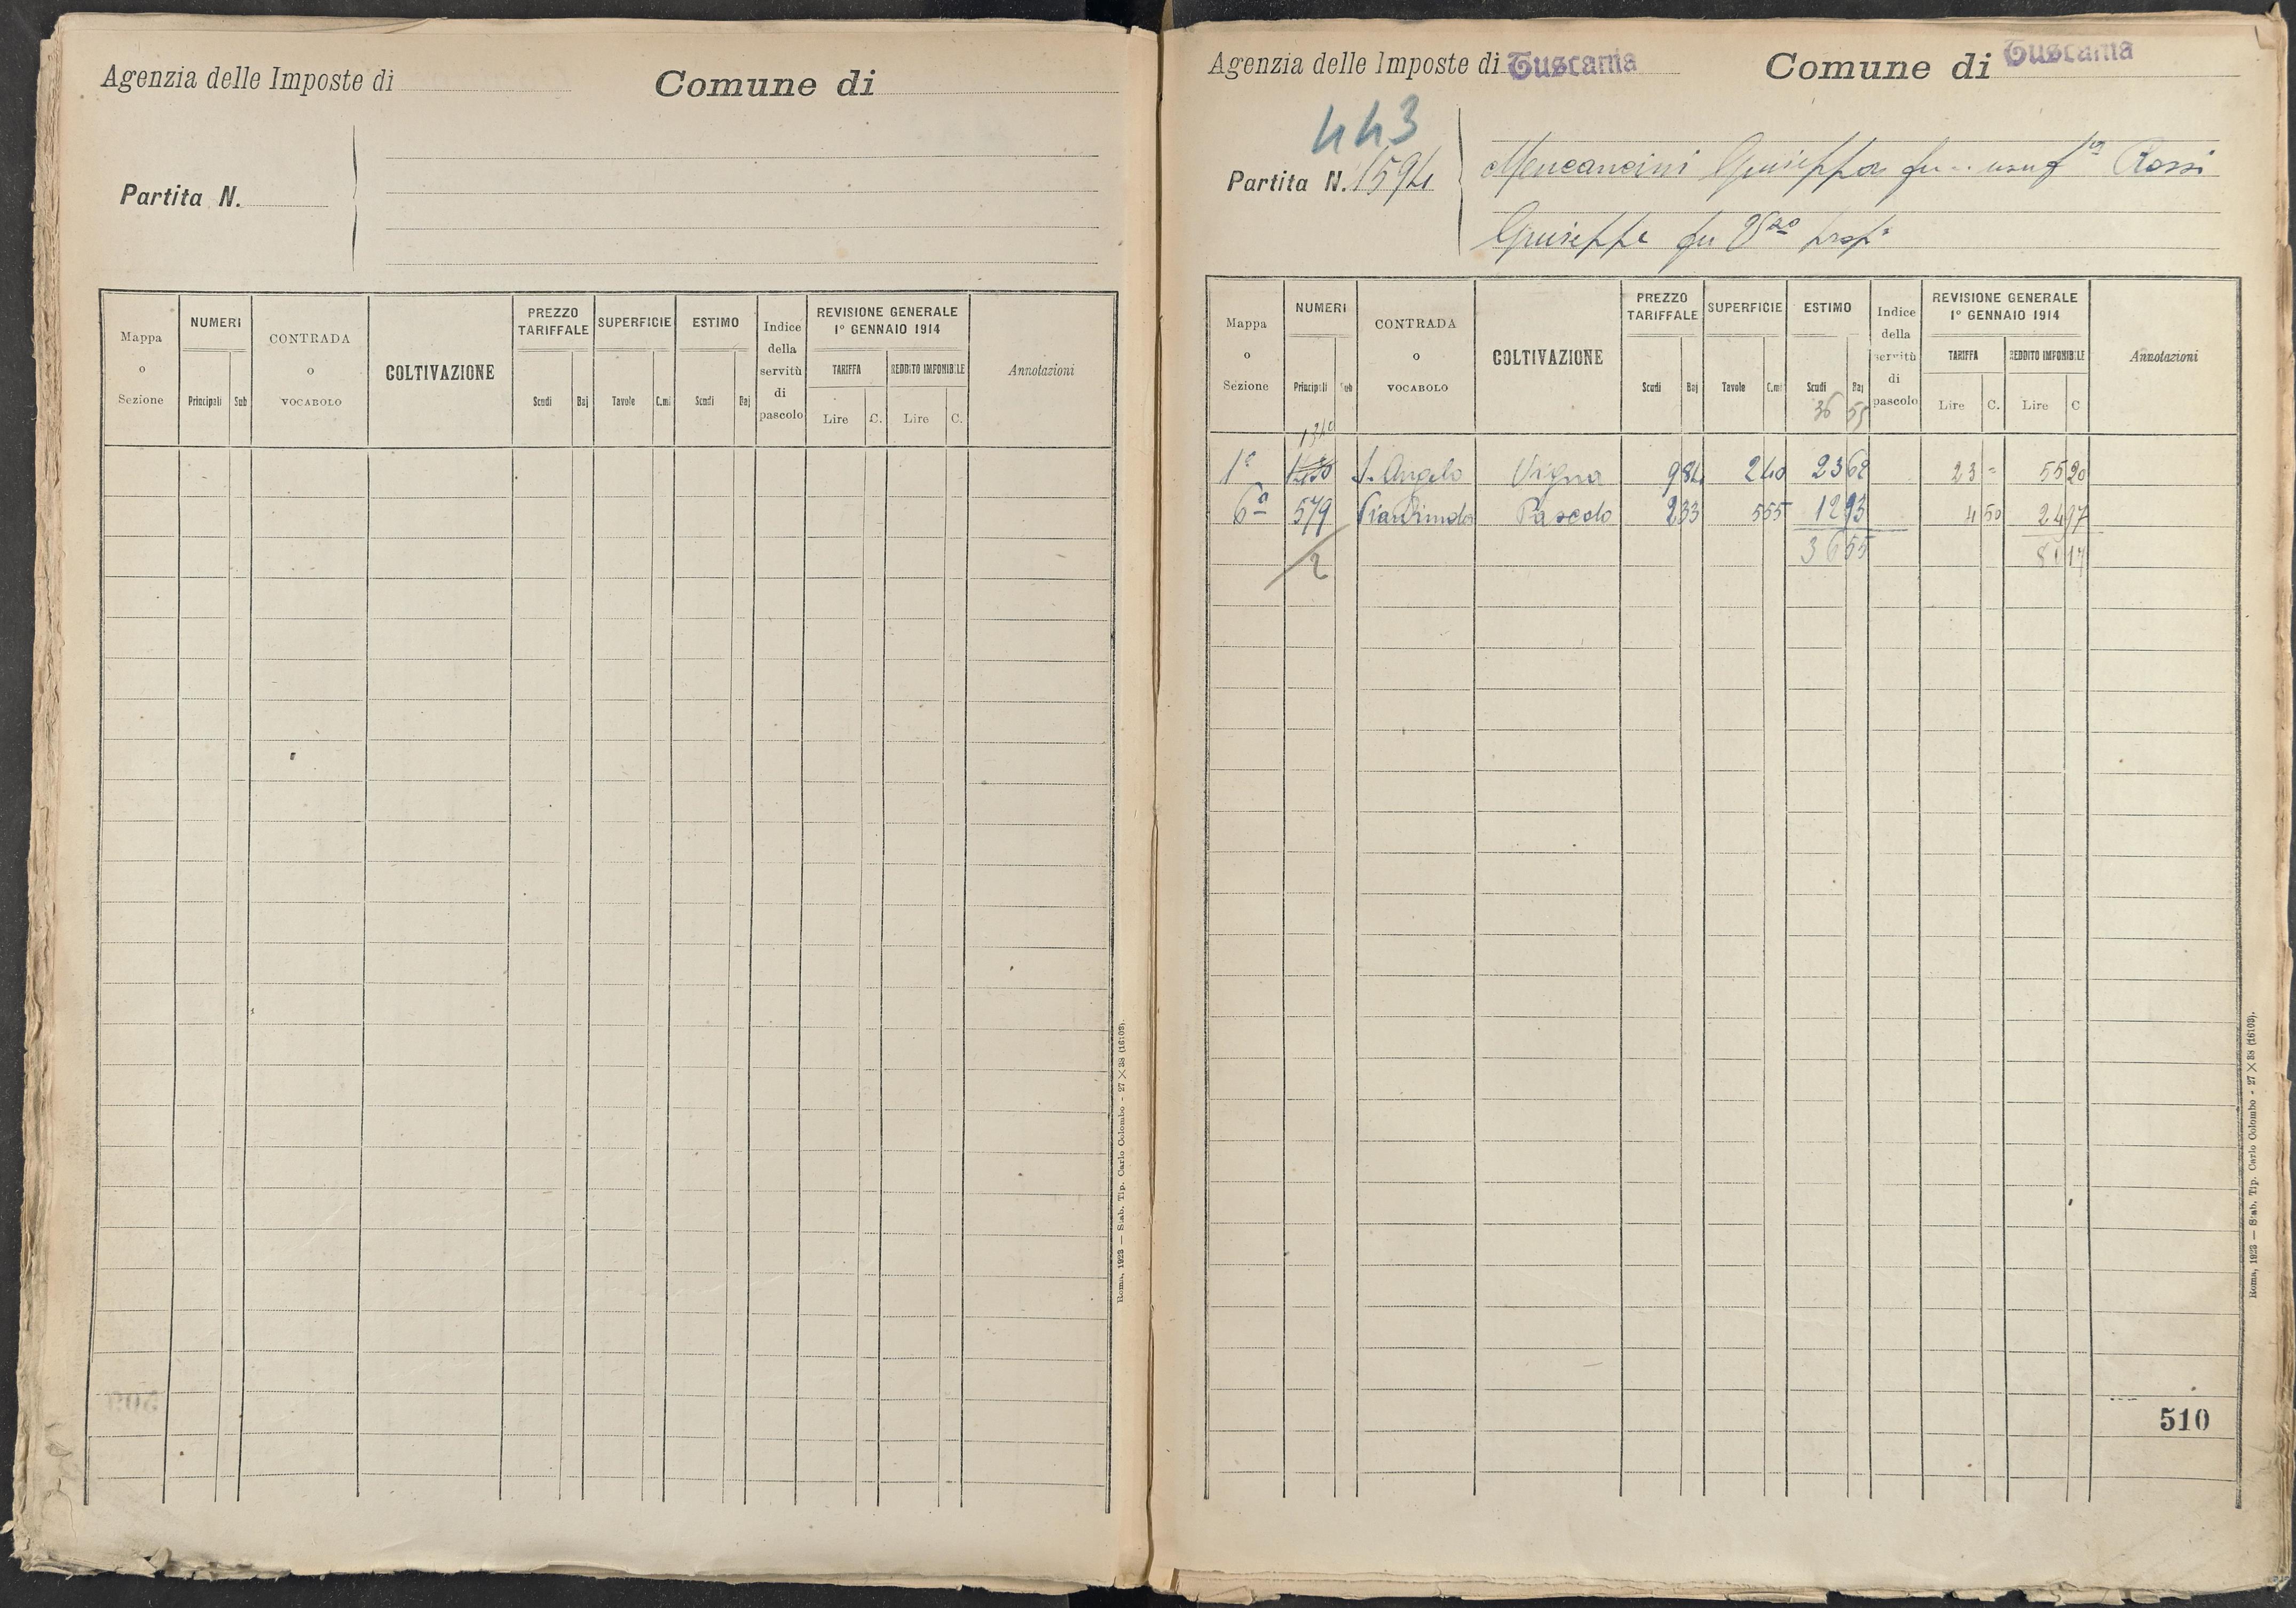 Agenzia delle Imposte di
Comune di
Partita N.
Mappa o Sezione
NUMERI
Principali
Sub
CONTRADA o VOCABOLO
COLTIVAZIONE
PREZZO TARIFFALE
Scudi
Baj
SUPERFICIE
Tavole
C.mi
ESTIMO
Scudi
Baj
Indice della servitù di pascolo
REVISIONE GENERALE
1° GENNAIO 1914
TARIFFA
REDDITO IMPONIBILE
Lire
C.
Lire
C.
Annotazioni
Roma, 1923 — Stab. Tip. Carlo Colombo - 27 × 38 (16103).
Agenzia delle Imposte di Tuscania
Comune di Tuscania
443
Partita N. 1594
Mencancini Giuseppa fu ... usuf.ia Rossi
Giuseppe fu V.zo prop.
Mappa o Sezione
NUMERI
Principali
Sub
CONTRADA o VOCABOLO
COLTIVAZIONE
PREZZO TARIFFALE
Scudi
Baj
SUPERFICIE
Tavole
C.mi
ESTIMO
Scudi
Baj
36 55
Indice della servitù di pascolo
REVISIONE GENERALE
1° GENNAIO 1914
TARIFFA
REDDITO IMPONIBILE
Lire
C.
Lire
C
Annotazioni
1ª S. Angelo Vigna 9 84 2 40 23 62 23 = 55 20
6ª 579 Pascolo 2 33 5 55 12 93 4 50 24 97
2 36 55 80 17
510